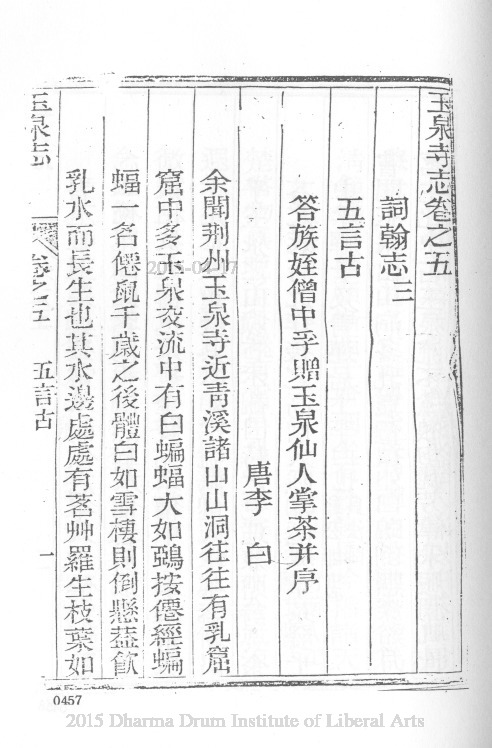 玉泉寺志卷之五
詞翰志三
五言古
答族姪僧中孚贈玉泉仙人掌茶并序
唐李白
余聞荆州玉泉寺近靑溪諸山山洞往往有乳窟
窟中多玉泉交流中有白蝙蝠大如鵶按僊經蝙
蝠一名僊鼠千歲之後體白如雪棲則倒懸葢飮
乳水而長生也其水邊處處有茗艸羅生枝葉如
玉泉志
卷之五
五言古
一
0457
2015 Dharma Drum Institute of Liberal Arts